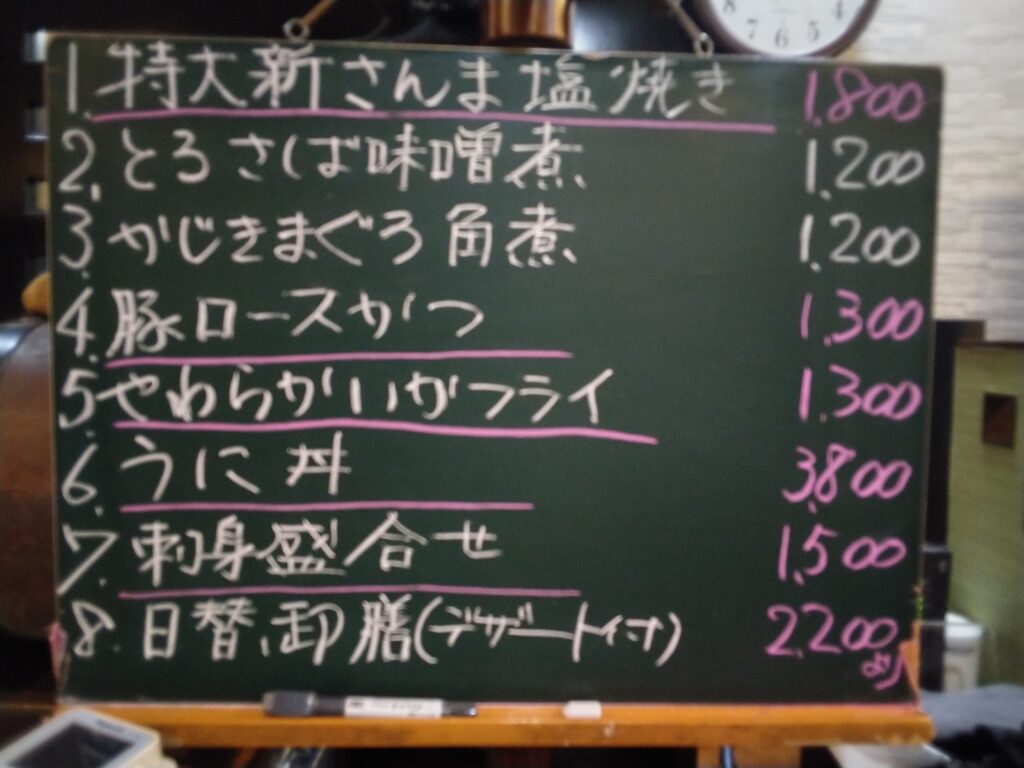 1. 特大新さんま塩焼き 1,800
2. とろさば味噌煮 1,200
3. かじきまぐろ角煮 1,200
4. 豚ロースかつ 1,300
5. やわらかいかフライ 1,300
6. うに丼 3,800
7. 刺身盛合せ 1,500
8. 日替、御膳(デザート付) 2,200
より
8 7 6 5 4